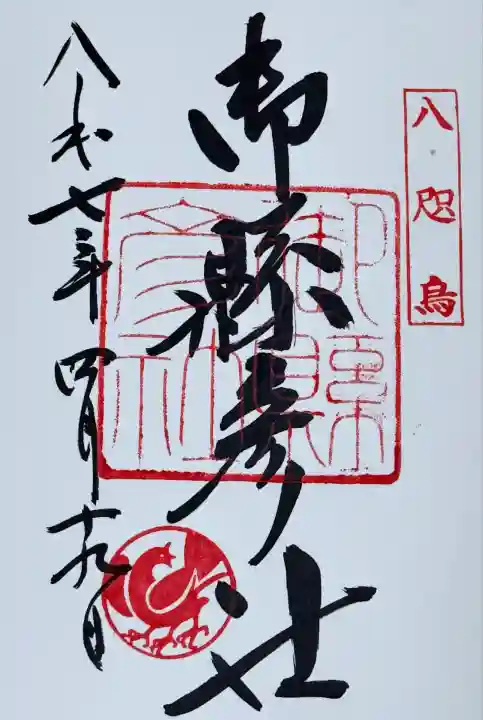 八咫烏
御縣彦社
御縣彦社
令和七年四月十九日